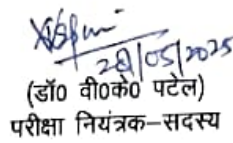 28/05/2025
(डॉ0 वी0के0 पटेल)
परीक्षा नियंत्रक–सदस्य